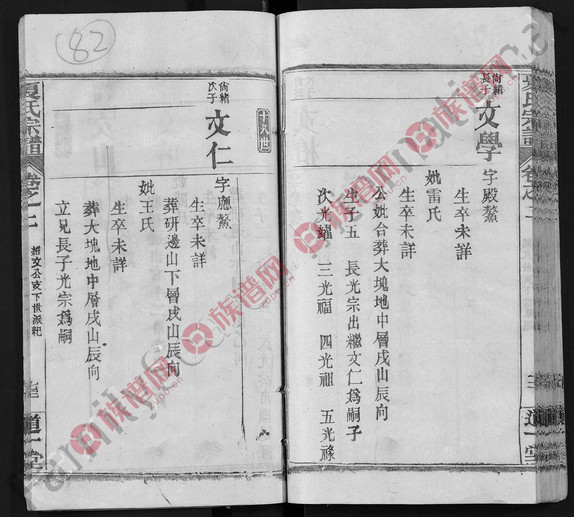 尙緒長子 文學
字殿鰲
生卒未詳
妣雷氏
生卒未詳
公妣合葬大塊地中層戌山辰向
生子五 長光宗出繼文仁爲嗣子
次光韞 三光福 四光祖 五光祿
82
夏氏宗譜
十八世
尙緒次子 文仁
字應鰲
生卒未詳
葬研邊山下層戌山辰向
妣王氏
生卒未詳
葬大塊地中層戌山辰向
立兄長子光宗爲嗣
夏氏宗譜 卷之二
道一堂
族谱网